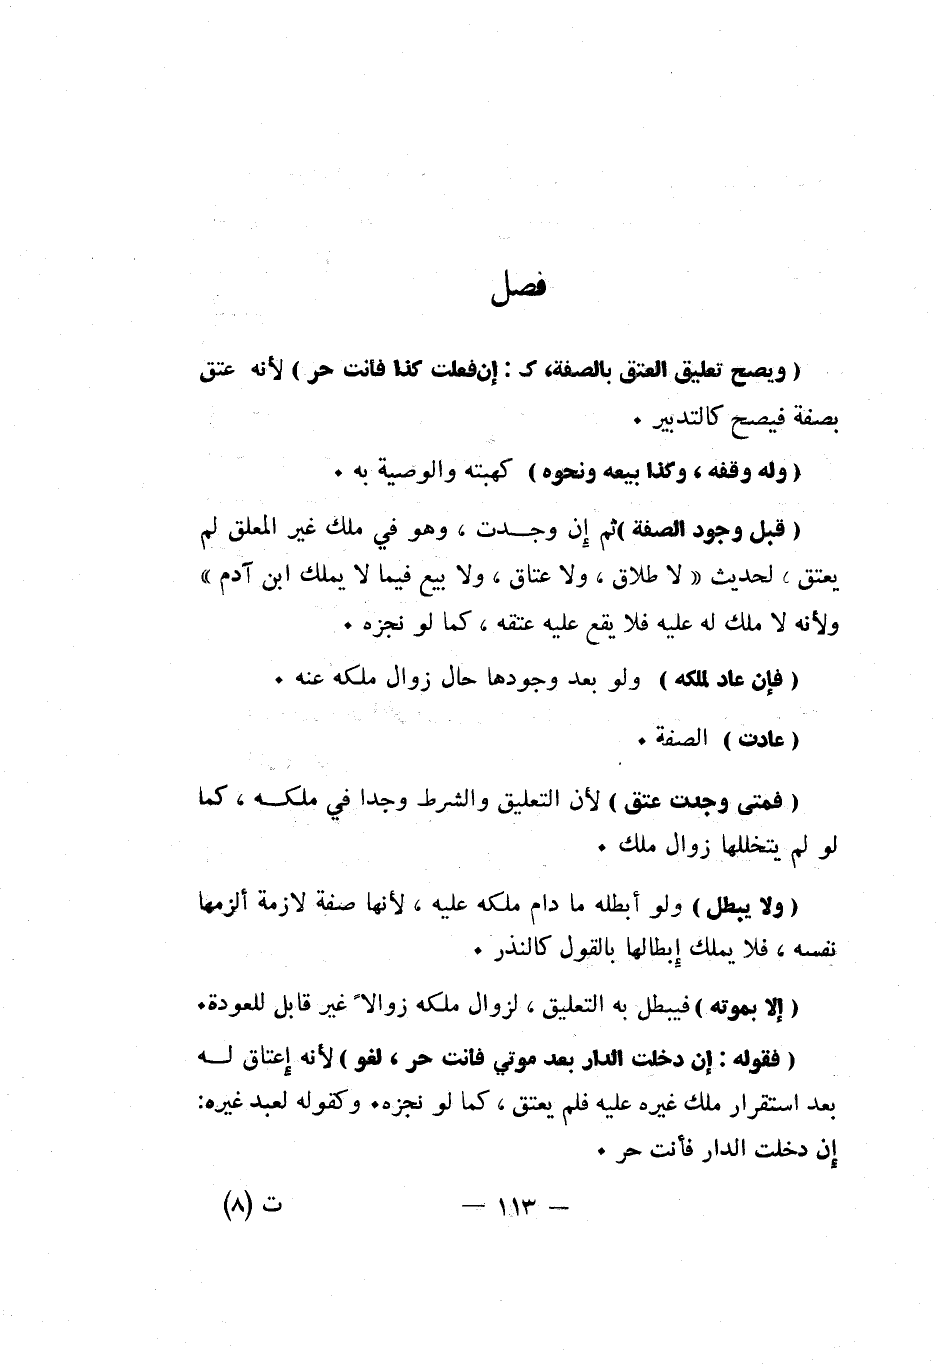 فصل
( ويصح تعليق العتق بالصفة، كـ : إن فعلت كذا فأنت حر ) لأنه عتق
بصفة فيصح كالتدبير .
( وله وقفه ، وكذا بيعه ونحوه ) كهبته والوصية به .
( قبل وجود الصفة ) ثم إن وجـــدت ، وهو في ملك غير المعلق لم
يعتق ، لحديث « لا طلاق ، ولا عتاق ، ولا بيع فيما لا يملك ابن آدم »
ولأنه لا ملك له عليه فلا يقع عليه عتقه ، كما لو نجزه .
( فإن عاد لملكه ) ولو بعد وجودها حال زوال ملكه عنه .
( عادت ) الصفة .
( فمتى وجدت عتق ) لأن التعليق والشرط وجدا في ملكـــه ، كما
لو لم يتخللها زوال ملك .
( ولا يبطل ) ولو أبطله ما دام ملكه عليه ، لأنها صفة لازمة ألزمها
نفسه ، فلا يملك إبطالها بالقول كالنذر .
( إلا بموته ) فيبطل به التعليق ، لزوال ملكه زوالاً غير قابل للعودة.
( فقوله : إن دخلت الدار بعد موتي فأنت حر ، لغو ) لأنه إعتاق لـــه
بعد استقرار ملك غيره عليه فلم يعتق ، كما لو نجزه. وكقوله لعبد غيره:
إن دخلت الدار فأنت حر .
— ١١٣ —
ت (٨)